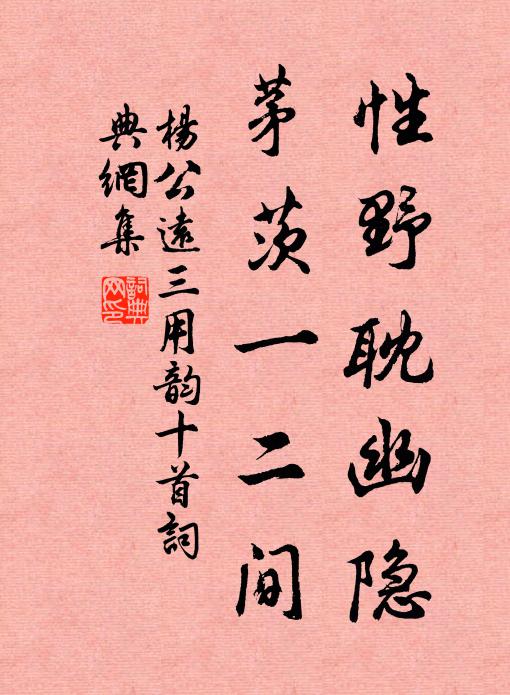 性野耽幽隐
茅茨一二间
楊公遠三用韵十首詞
典網集
詞典网印